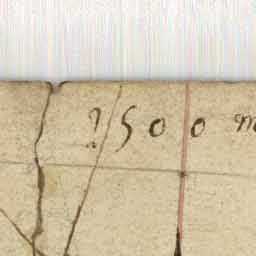 ?500 m